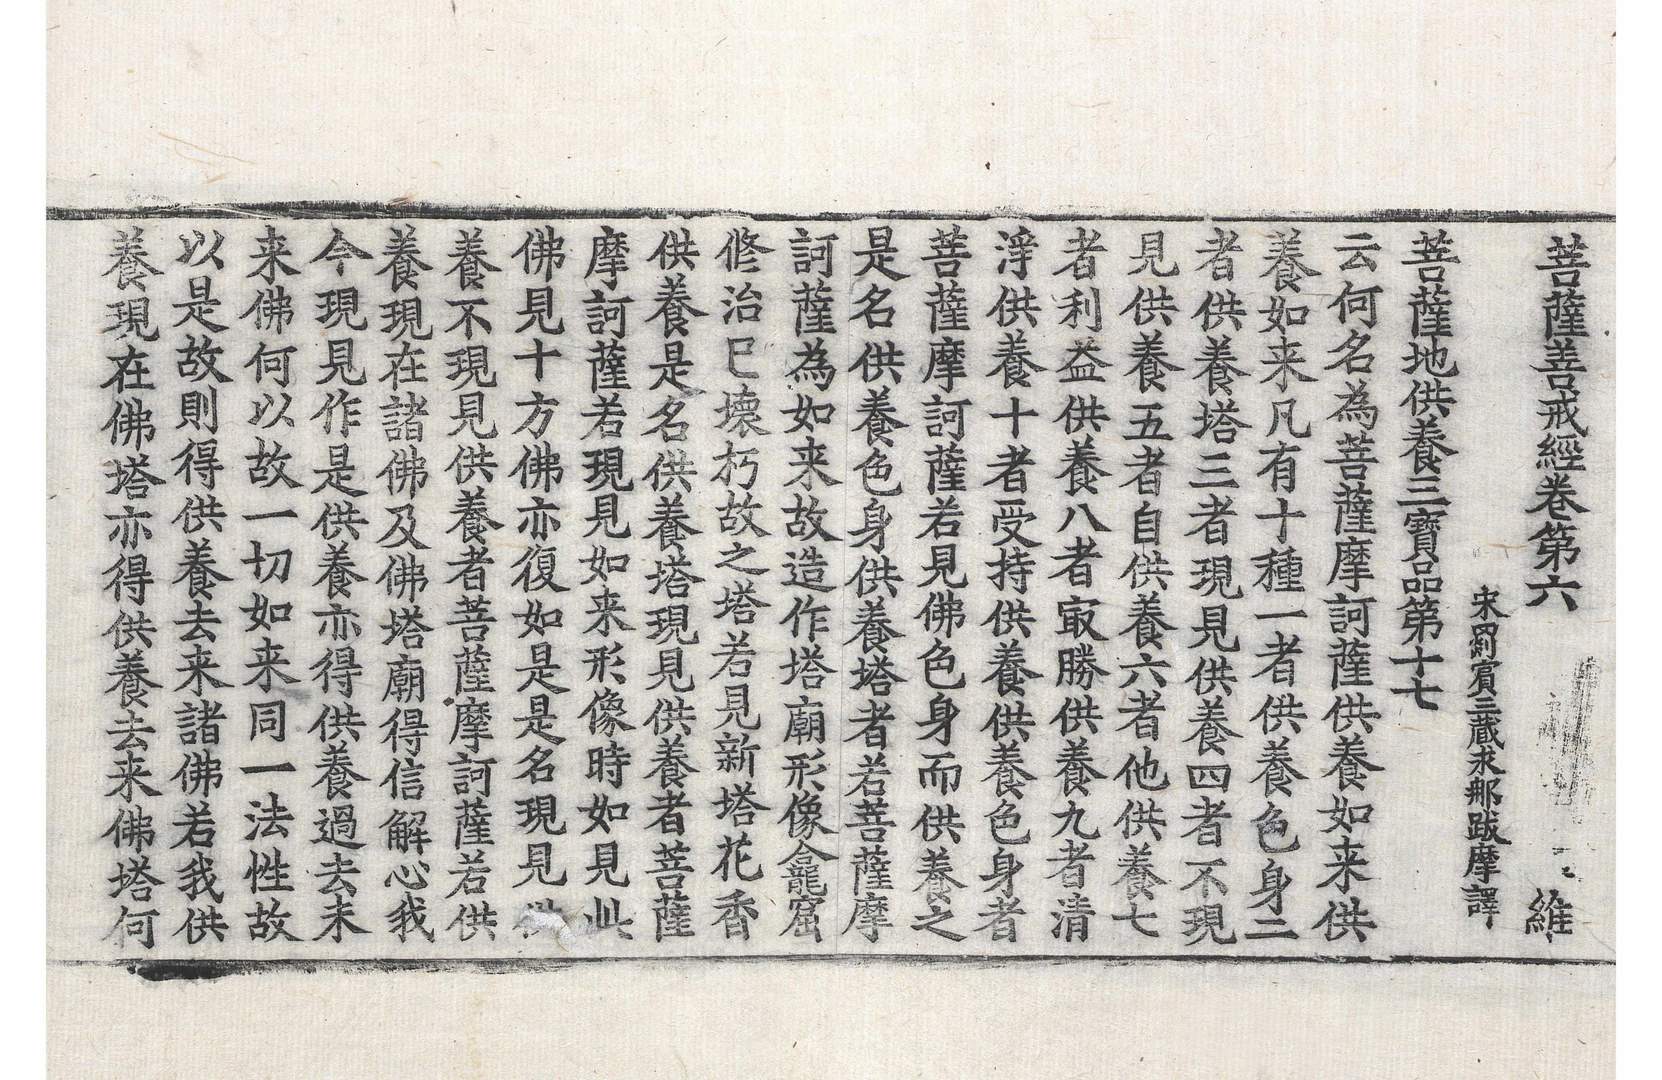 菩薩善戒經卷第六 維
宋罽賓三藏求那跋摩譯
菩薩地供養三寶品第十七
云何名為菩薩摩訶薩供養如来供
養如来凡有十種一者供養色身二
者供養塔三者現見供養四者不現
見供養五者自供養六者他供養七
者利益供養八者㝡勝供養九者清
淨供養十者受持供養供養色身者
菩薩摩訶薩若見佛色身而供養之
是名供養色身供養塔者若菩薩摩
訶薩為如来故造作塔廟形像龕窟
修治已壞朽故之塔若見新塔花香
供養是名供養塔現見供養者菩薩
摩訶薩若現見如来形像時如見此
佛見十方佛亦復如是是名現見供
養不現見供養者菩薩摩訶薩若供
養現在諸佛及佛塔廟得信解心我
今現見作是供養亦得供養過去未
来佛何以故一切如来同一法性故
以是故則得供養去来諸佛若我供
養現在佛塔亦得供養去来佛塔何